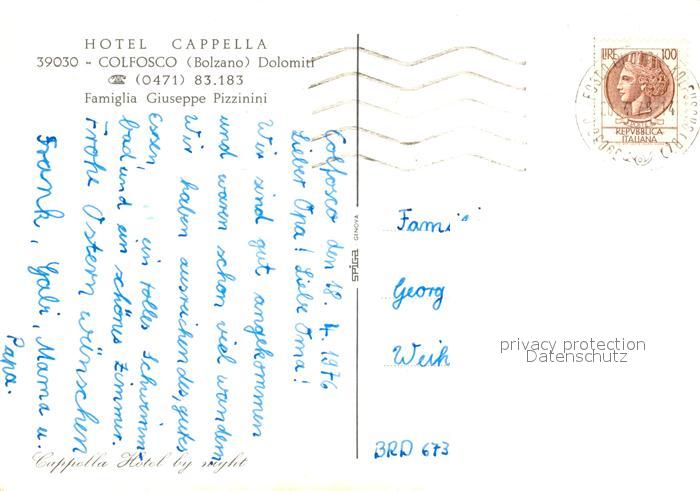 HOTEL CAPPELLA
39030 - COLFOSCO (Bolzano) Dolomiti
☎ (0471) 83.183
Famiglia Giuseppe Pizzinini
Colfosco den 18. 4. 1976
Lieber Opa! Liebe Oma!
Wir sind gut angekommen
und waren schon viel wandern
Wir haben ausreichendes, gutes
Essen, ein tolles Schwimm
bad und ein schönes Zimmer.
Frohe Ostern wünschen
Frank, Gabi, Mama u.
Papa.
Cappella Hotel by night
SPIGA GENOVA
LIRE 100
REPVBBLICA
ITALIANA
Fami
Georg
Weih
privacy protection
Datenschutz
BRD 673